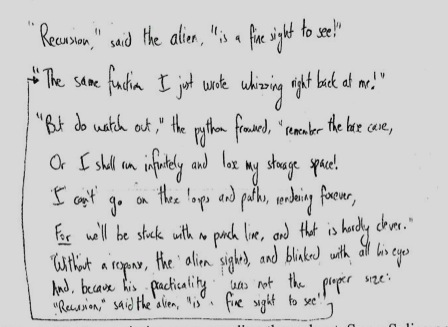 "Recursion," said the alien, "is a fine sight to see!"
"The same function I just wrote whizzing right back at me!"
"But do watch out," the python frowned, "remember the base case,
Or I shall run infinitely and lose my storage space!
I can't go on these loops and paths, rendering forever,
For we'll be stuck with no punch line, and that is hardly clever."
Without a response, the alien sighed, and blinked with all his eyes
And, because his practicality was not the proper size:
"Recursion," said the alien, "is a fine sight to see"